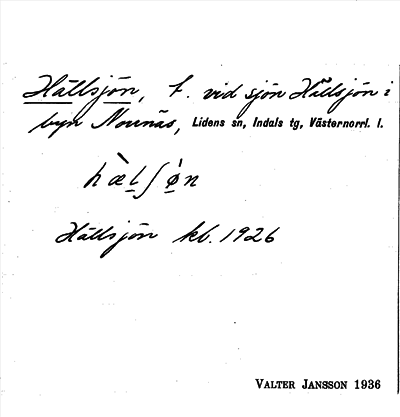 Hällsjön, t. vid sjön Hällsjön i
byn Nornäs, Lidens sn, Indals tg, Västernorrl. l.
hæ̀lʃø̀n
Hällsjön kb. 1926
VALTER JANSSON 1936